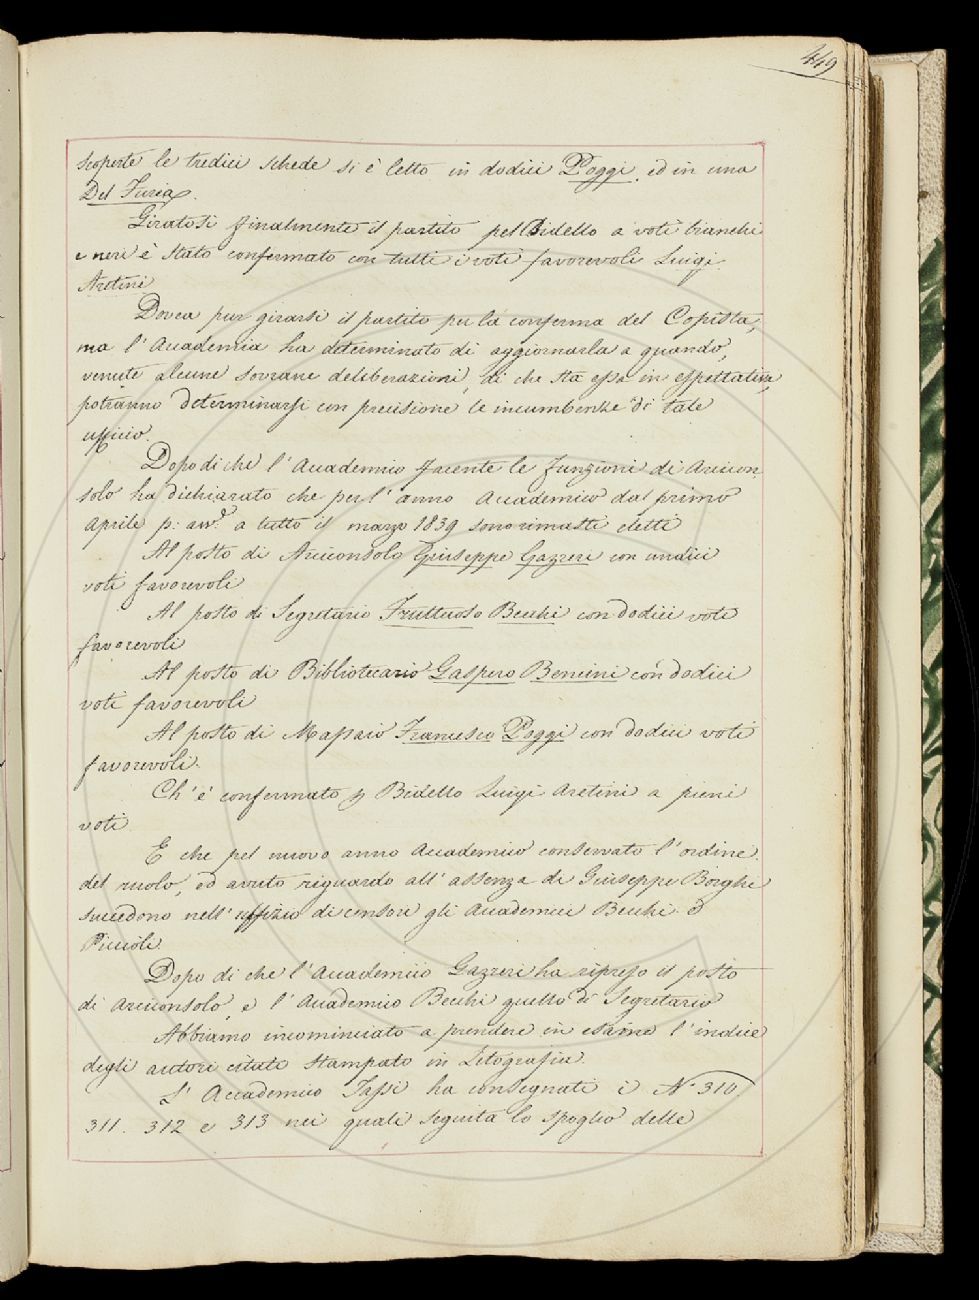 449
scoperte le tredici schede si è letto in dodici Poggi, ed in una
Del Furia.
Giratosi finalmente il partito pel Bidello a voti bianchi
e neri è stato confermato con tutti i voti favorevoli Luigi
Aretini
Dovea pur girarsi il partito per la conferma del Copista,
ma l'Accademia ha determinato di aggiornarla a quando,
venute alcune sovrane deliberazioni, di che sta essa in espettativa,
potranno determinarsi con precisione le incumbenze di tale
ufficio.
Dopo di che l'Accademico facente le funzioni di Arcicon
solo ha dichiarato che per l'anno Accademico dal primo
Aprile p: avv.º a tutto il marzo 1839 sono rimasti eletti
Al posto di Arciconsolo Giuseppe Gazzeri con undici
voti favorevoli
Al posto di Segretario Fruttuoso Becchi con dodici voti
favorevoli
Al posto di Bibliotecario Gaspero Bencini con dodici
voti favorevoli
Al posto di Massaio Francesco Poggi con dodici voti
favorevoli.
Ch'è confermato p Bidello Luigi Aretini a pieni
voti
E che pel nuovo anno Accademico conservato l'ordine
del ruolo, ed avuto riguardo all'assenza di Giuseppe Borghi
succedono nell'uffizio di censori gli Accademici Becchi e
Piccioli.
Dopo di che l'Accademico Gazzeri ha ripreso il posto
di Arciconsolo, e l'Accademico Becchi quello di Segretario
Abbiamo incominciato a prendere in esame l'indice
degli autori citati stampato in Litografia.
L'Accademico Tassi ha consegnati i Nⁱ 310.
311. 312 e 313 nei quali seguita lo spoglio delle